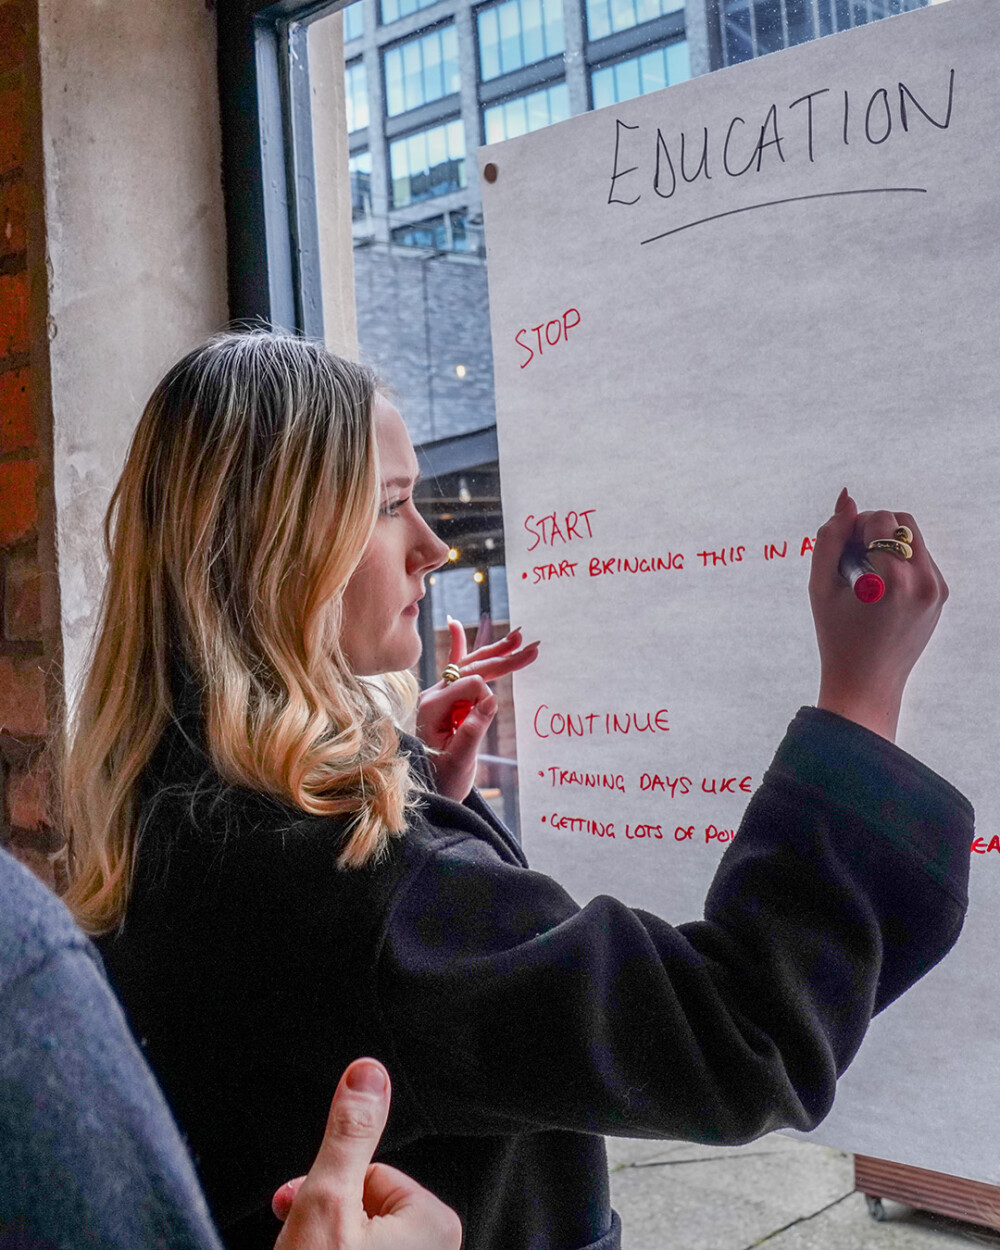 EDUCATION
STOP
START
• START BRINGING THIS IN
CONTINUE
• TRAINING DAYS LIKE
• GETTING LOTS OF